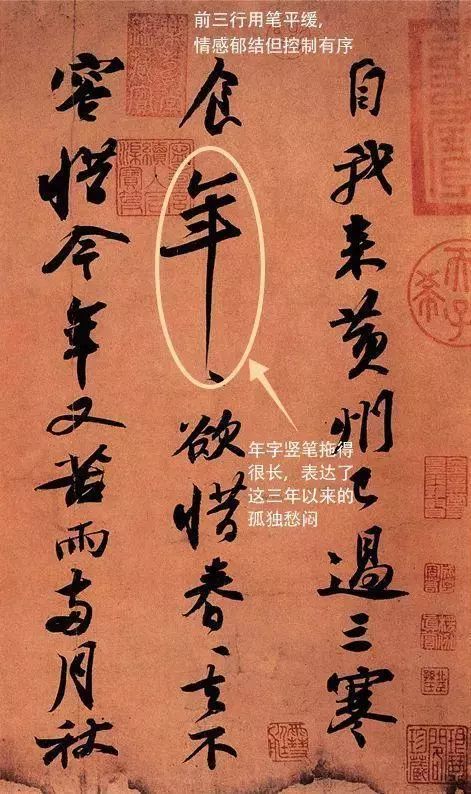 前三行用笔平缓，
情感郁结但控制有序
自我来黃州已過三寒
食年、欲惜春、去不
容惜今年又苦雨兩月秋
年字竖笔拖得
很长，表达了
这三年以来的
孤独愁闷